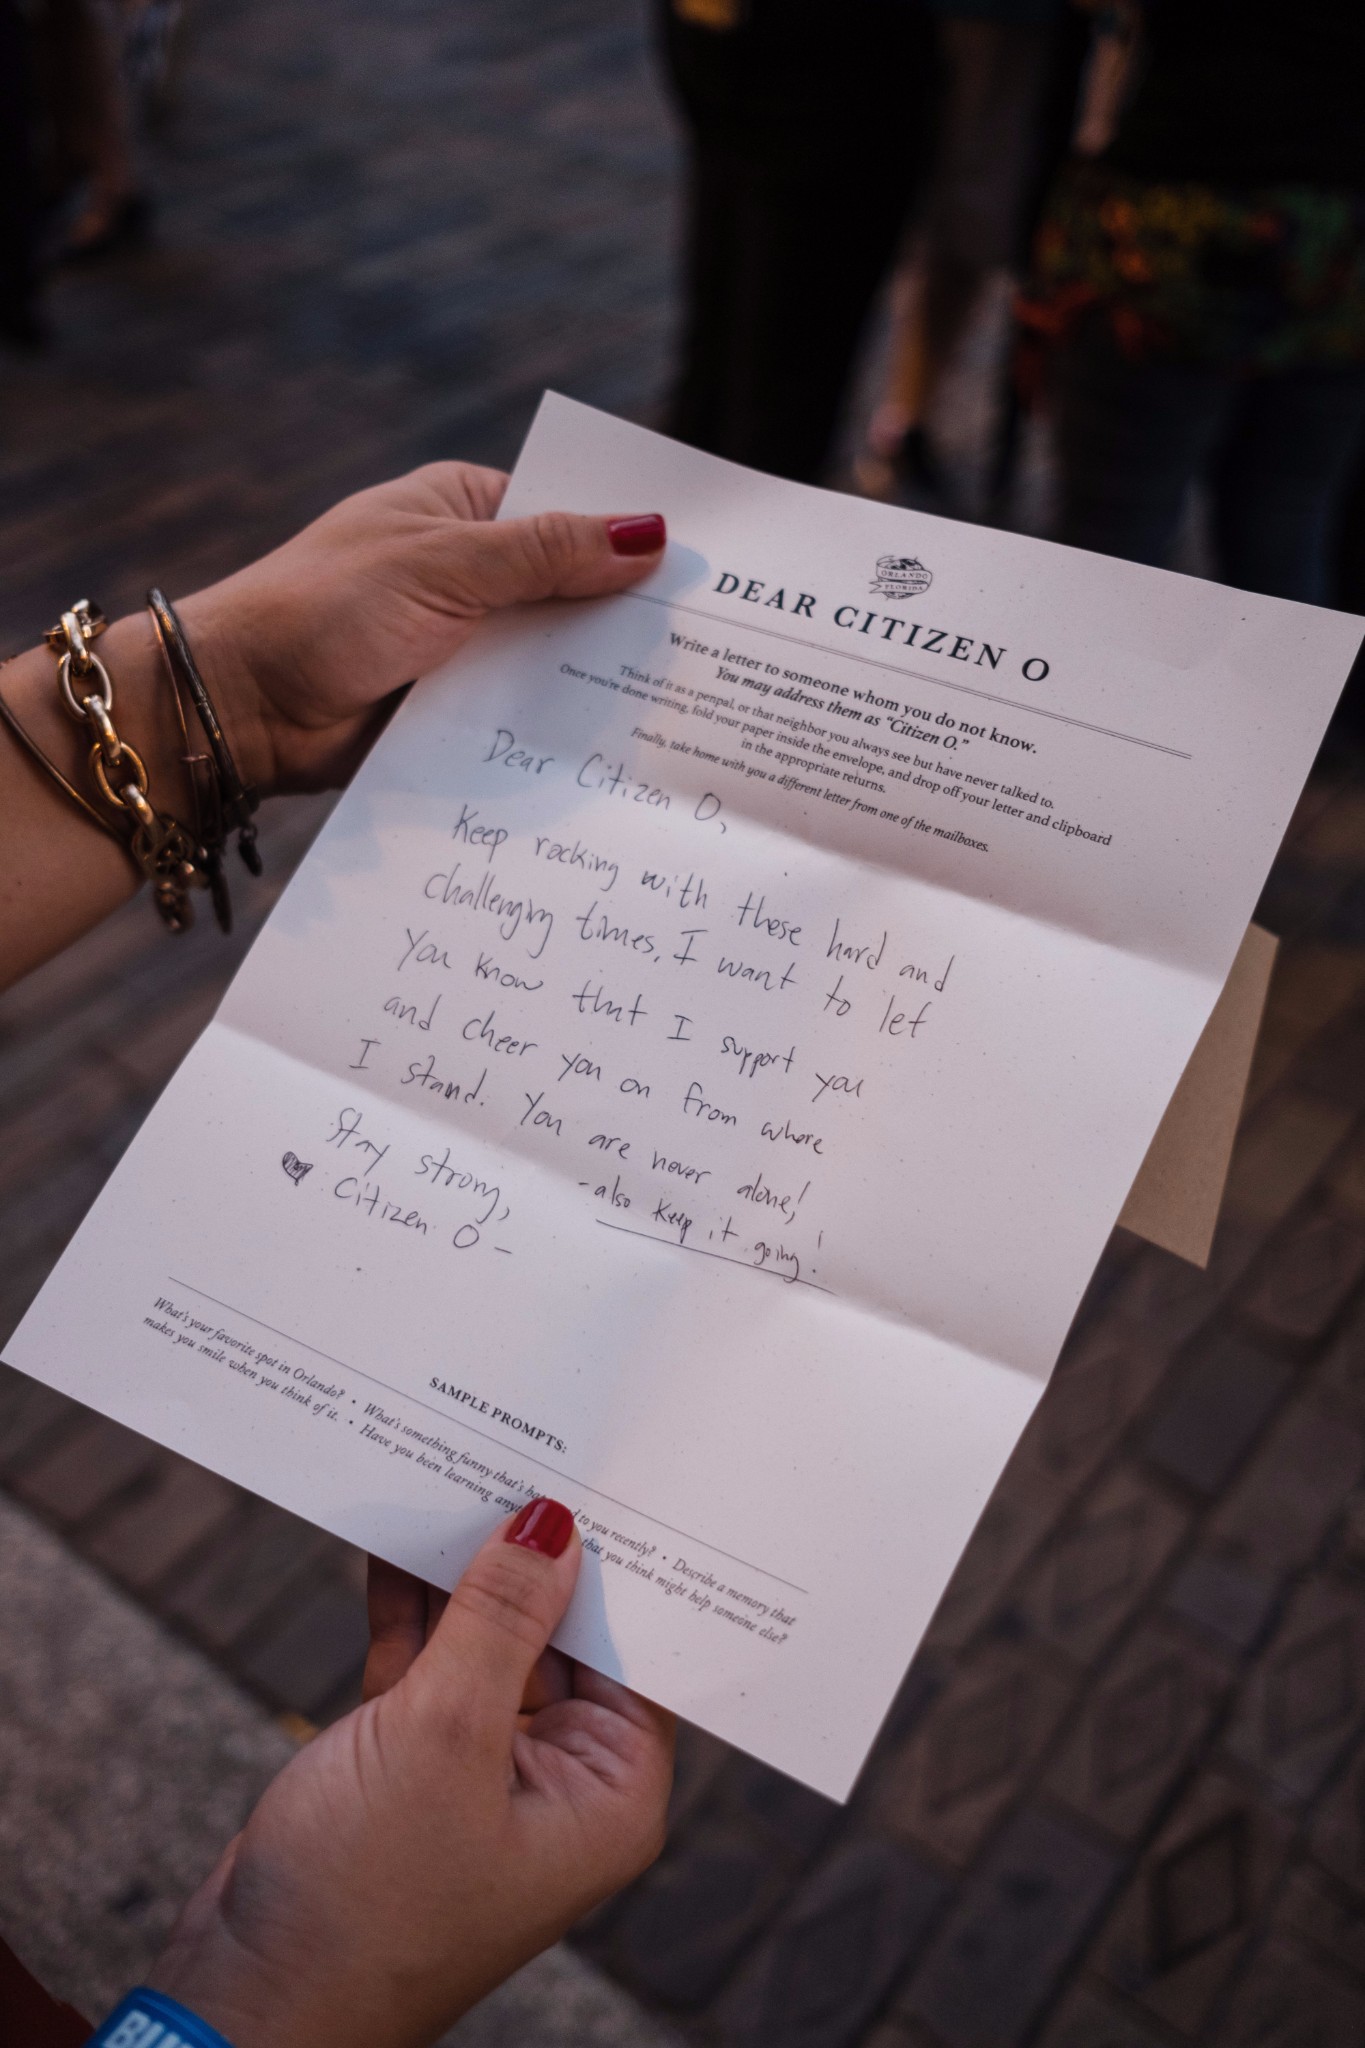 ORLANDO
FLORIDA
DEAR CITIZEN O
Write a letter to someone whom you do not know.
You may address them as “Citizen O.”
Think of it as a penpal, or that neighbor you always see but have never talked to.
Once you're done writing, fold your paper inside the envelope, and drop off your letter and clipboard
in the appropriate returns.
Finally, take home with you a different letter from one of the mailboxes.
Dear Citizen O,
Keep rocking with these hard and
challenging times, I want to let
you know that I support you
and cheer you on from where
I stand. You are never alone!
- also keep it going!
Stay strong,
Citizen O -
SAMPLE PROMPTS:
What's your favorite spot in Orlando? • What's something funny that's to you recently? • Describe a memory that
makes you smile when you think of it. • Have you been learning that you think might help someone else?